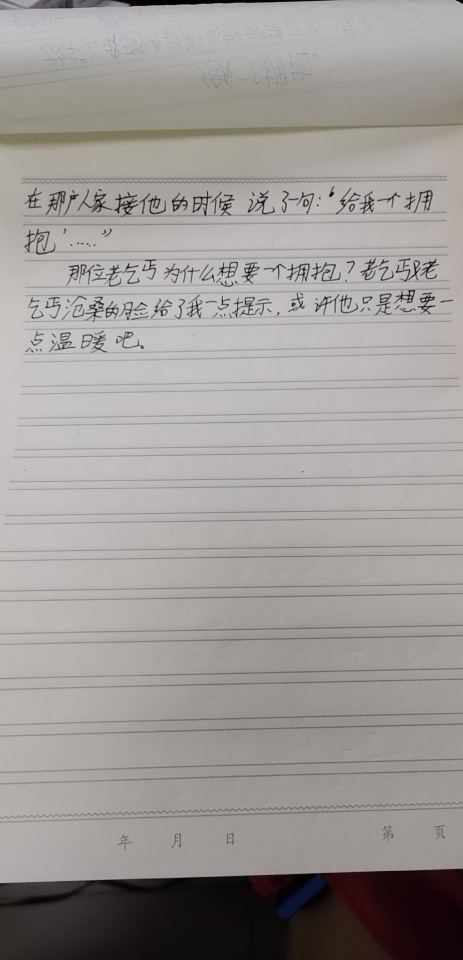 在那户人家接他的时候 说了一句：‘给我一个拥
抱’……”
那位老乞丐为什么想要一个拥抱？老乞丐老
乞丐沧桑的脸给了我一点提示，或许他只是想要一
点温暖吧。
年 月 日 第 页